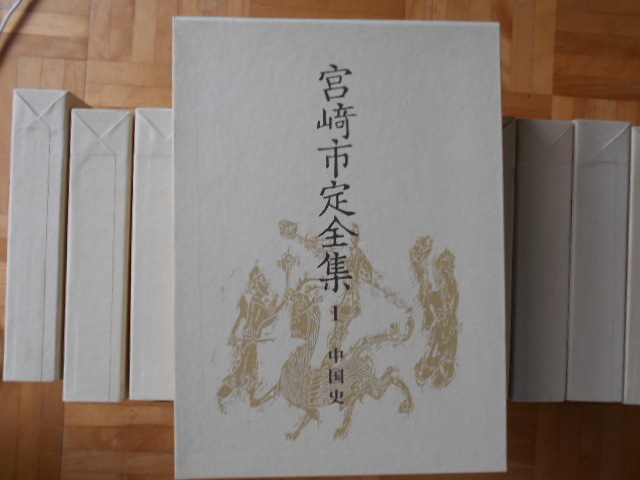 宮﨑市定全集
1
中国史